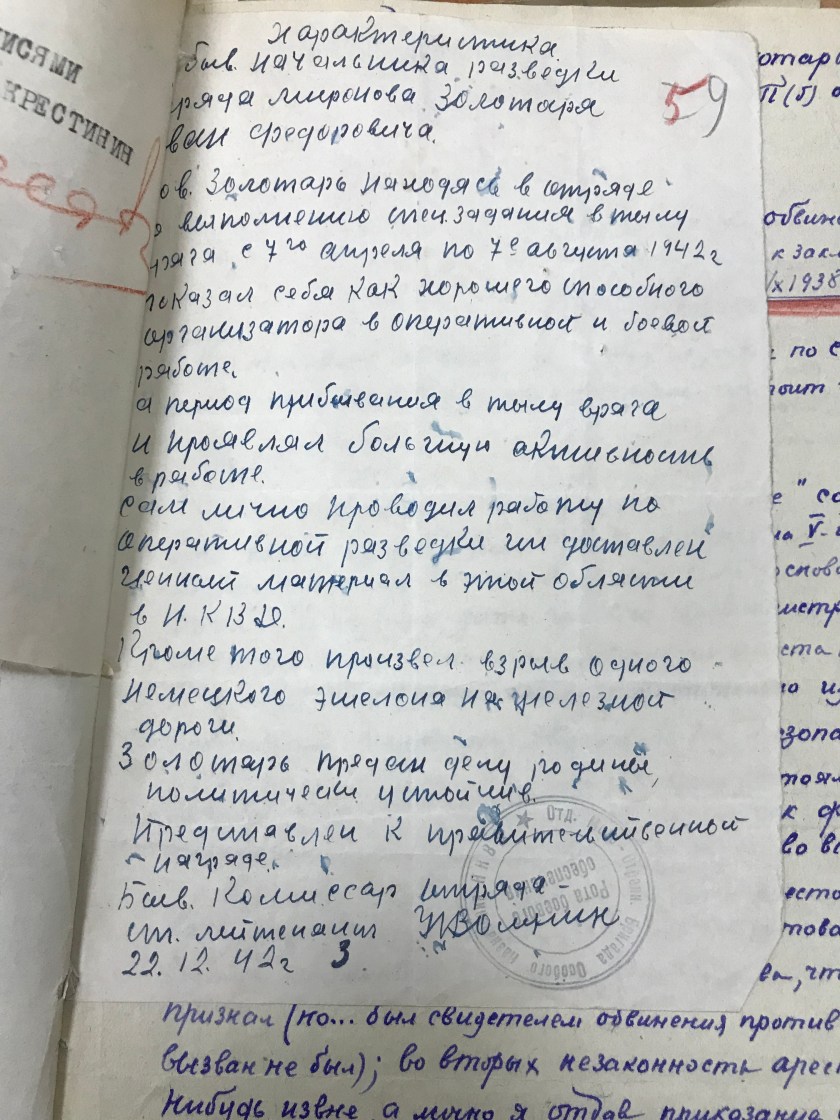 ИСЯМИ
КРЕСТИНИН
Характеристика
быв. начальника разведки
ряда миронова Золотаря
ван Федоровича.
59
ов. Золотарь находясь в отряде
о выполнению спец. задания в тылу
рага с 7го апреля по 7е августа 1942г
показал себя как хорошего способного
организатора в оперативной и боевой
работе.
а период прибывания в тылу врага
и проявлял большую активность
в работе.
сам лично проводил работу по
оперативной разведки им доставлен
ценный материал в этой области
в Н.К.В.Д.
Кроме того произвел взрыв одного
немецкого эшелона на железной
дороги.
Золотарь предан делу родины,
политически устойчив.
Представлен к правительственной
награде.
Быв. Комиссар отряда
ст. лейтенант
22. 12. 42г 3
Отд. бригада Особого
Рота боевого
обеспечения
отари
П(б)
обвине
к закл
1938
по с
тоит
" со
на V-
оспово
истр
ста
езопа
тоял
к ф
во в
есто
това
ва, чт
признал (но... был свидетелем обвинения против
вызван не был); во вторых незаконность арес
нибудь извне а лично я отдав приказание